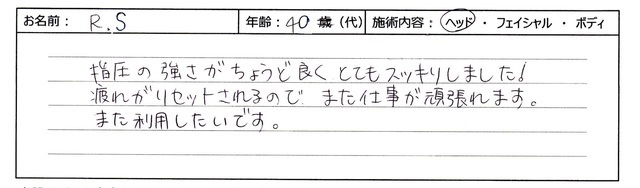 お名前： R.S 年齢：40 歳（代） 施術内容：ヘッド・フェイシャル・ボディ
指圧の強さがちょうど良くとてもスッキリしました！
疲れがリセットされるので また仕事が頑張れます。
また利用したいです。